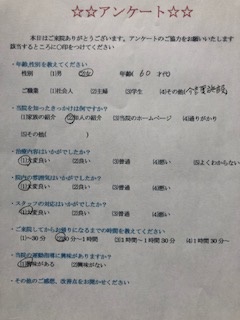 ☆☆アンケート☆☆
本日はご来院ありがとうございます。アンケートのご協力をお願いいたします
該当するところに〇印をつけてください
・年齢,性別を教えてください
性別 (1)男 (2)女 年齢( 60 才代)
ご職業 (1)社会人 (2)主婦 (3)学生 (4)その他(
・当院を知ったきっかけは何ですか?
(1)家族の紹介 (2)知人の紹介 (3)当院のホームページ (4)通りがかり
(5)その他( )
・治療内容はいかがでしたか?
(1)大変良い (2)良い (3)普通 (4)悪い (5)よくわからない
・院内の雰囲気はいかがでしたか?
(1)大変良い (2)良い (3)普通 (4)悪い
・スタッフの対応はいかがでしたか?
(1)大変良い (2)良い (3)普通 (4)悪い
・ご来院してからお帰りになるまでの時間を教えてください
(1)~30分 (2)30分~1時間 (3)1時間~1時間30分 (4)1時間30分~
・当院の運動指導に興味がありますか?
(1)興味がある (2)興味がない
・その他のご感想、改善点をお聞かせください